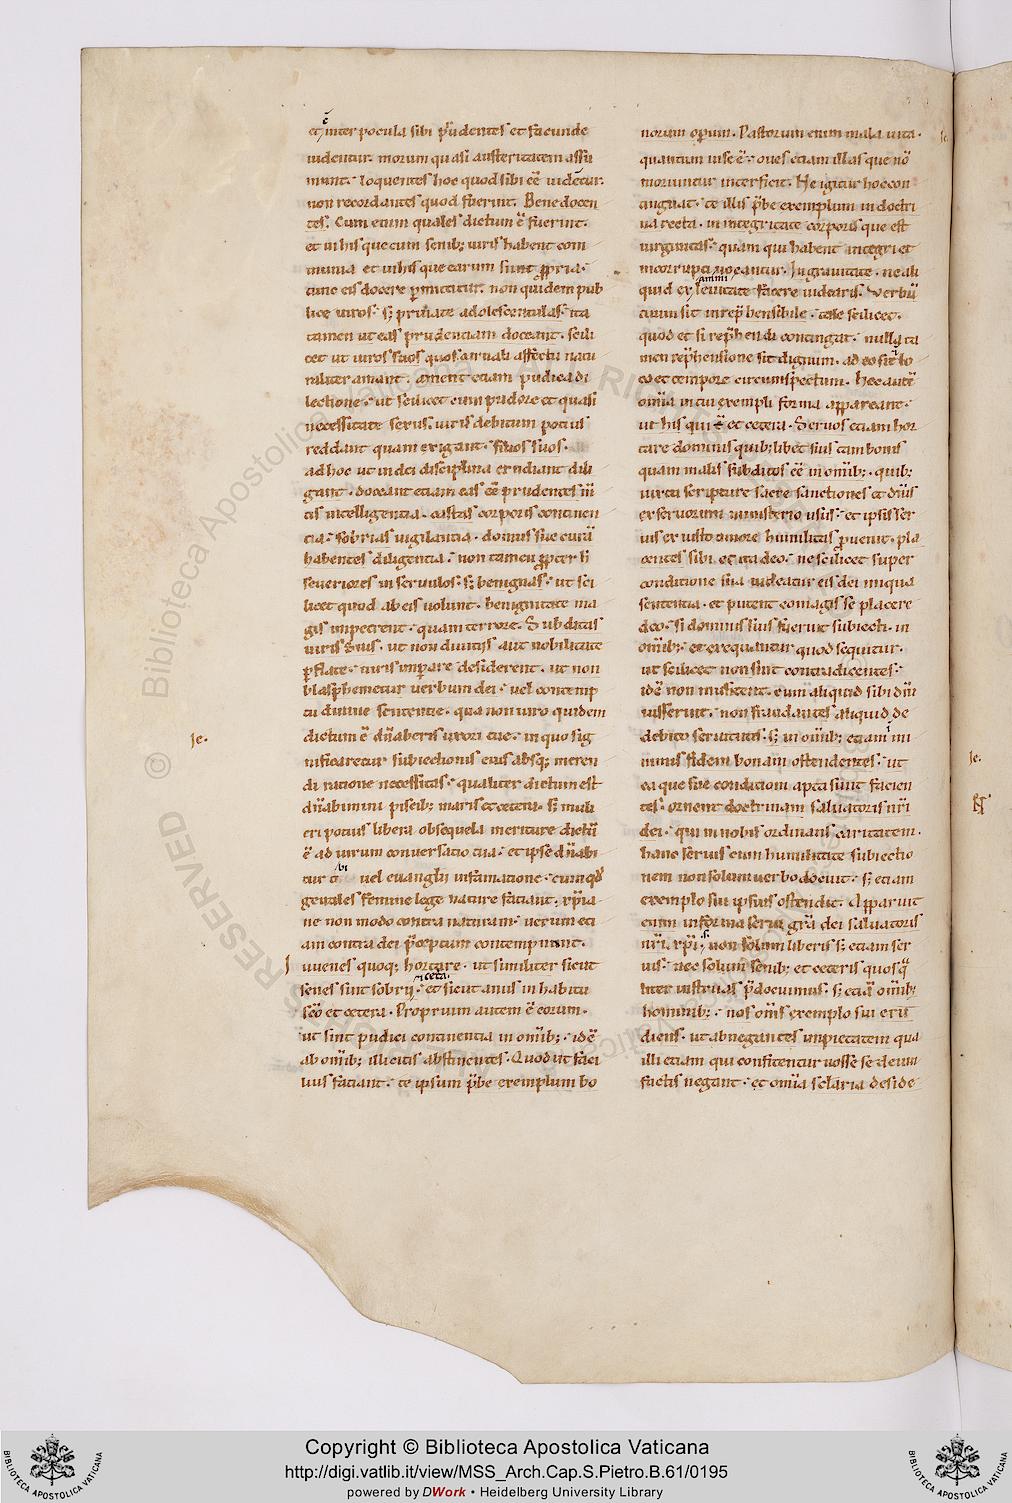 et inter pocula sibi prudentes et facunde
uidentur. morum quasi austeritatem assu
munt. loquentes hoc quod sibi ee̅ uidetur.
non recordantes quod fuerint. Bene docen
tes. Cum enim quales dictum e̅ fuerint.
et in his que cum senib; uiris habent com
munia et in his que earum sunt ꝓpria.
tunc eis docere ꝑmittitur. non quidem pub
lice uiros. sꝫ priuate adolescentulas. ita
tamen ut eas prudentiam doceant. scili
cet ut uiros suos quos carnali affectu natu
raliter amant. ament etiam pudica di
lectione. ut scilicet cum pudore et quasi
necessitate serus. uiris debitum potius
reddant quam exigant. filios suos.
ad hoc ut in dei disciplina erudiant dili
gant. doceant etiam eas ee̅ prudentes m̅
tis intelligentia. castas corporis continen
cia. sobrias uigilantia. domus sue curā
habentes diligentia. non tamen ꝓpter h
seueriores in seruulos. sꝫ benignas. ut sci
licet quod ab eis uolunt. benignitate ma
gis impetrent. quam terrore. Subditas
uiris suis. ut non diuitiis aut nobilitate
ꝑflate. uiris imꝑare desiderent. ut non
blasphemetur uerbum dei. uel contemp
tu diuine sententie. qua non uiro quidem
dictum e̅ dn̄aberis uxori tue. in quo sig
nificaretur subiectionis eius absq; meren
di ratione necessitas. qualiter dictum est
dn̄abimini piscib; maris et cetera. sꝫ muli
eri potius libera obsequela meriture dictū
e̅ ad uirum conuersatio tua. et ipse dn̄abi
tur t̅ uel euanglii infamatione. cum qd̅
gentiles femine lege nature faciant. xp̅ia
ne non modo contra naturam. uerum eti
am contra dei p̅ceptum contempnunt.
Iuuenes quoq; hortare. ut similiter sicut
senes sint sobrii. et cetera. et sicut anus in habitu
sc̅o et cetera. Proprium autem e̅ eorum.
ut sint pudici continentia in om̅ib;. ide̅
ab om̅ib; illicitis abstinentes. Quod ut faci
lius faciant. te ipsum p̅be exemplum bo
norum oꝑum. Pastorum enim mala uita.
quantum in se e̅. oues etiam illas que no̅
moriuntur interficit. Ne igitur hoc con
tingat. te illis p̅be exemplum in doctri
na recta. in integritate corporis que est
uirginitas. quam qui habent integri et
incorrupti uocantur. In grauitate. ne ali
quid ex leuitate animi facere uidearis. Verbū
tuum sit inrep̅hensibile. tale scilicet.
quod et si rep̅hendi contingat. nulla ta
men rep̅hensione sit dignum. adeo sit lo
co et tempore circumspectum. hec aute̅
om̅ia in tui exempli forma appareant.
ut his qui e̅ et cetera. Seruos etiam hor
tare dominis quib;libet suis tam bonis
quam malis subditos ee̅ in om̅ib;. quib;
iuxta scripture sacre sanctiones et diuīs
ex seruorum ministerio usus. et ipsis ser
uis ex iusto amore humilitas ꝓuenit. pla
centes sibi et ita deo. ne scilicet super
conditione sua uideatur eis dei iniqua
sententia. et putent eo magis se placere
deo. si dominis suis fuerint subiecti. in
om̅ib;. et exequantur quod sequitur.
ut scilicet non sint contradicentes.
ide̅ non musitent. cum aliquid sibi dn̄i
iusserint. non fraudantes aliquid de
debito seruitutis. sꝫ in om̅ib; etiam in mi
nimis fidem bonam ostendentes. ut
ea que sue conditioni apta sunt facien
tes. ornent doctrinam saluatoris nr̅i
dei. qui in nobis ordinans caritatem.
hanc seruis cum humilitate subiectio
nem non solum uerbo docuit. sꝫ etiam
exemplo sui ipsius ostendit. Apparuit
enim in forma serui gr̅a dei saluatoris
nr̅i. xp̅i. non solum liberis sꝫ etiam ser
uis. nec solum senib; et ceteris quos q̅
liter instruas p̅docuimus. sꝫ etiā om̅ib;
hominib;. nos om̅s exemplo sui eru
diens. ut abnegantes impietatem qua
illi etiam qui confitentur nosse se deum
factis negant. et om̅ia sclaria deside
Ie.
Ie.
Copyright © Biblioteca Apostolica Vaticana
http://digi.vatlib.it/view/MSS_Arch.Cap.S.Pietro.B.61/0195
powered by DWork • Heidelberg University Library
BIBLIOTECA APOSTOLICA VATICANA
BIBLIOTECA APOSTOLICA VATICANA
© Biblioteca Apostolica Vaticana ALL RIGHTS RESERVED